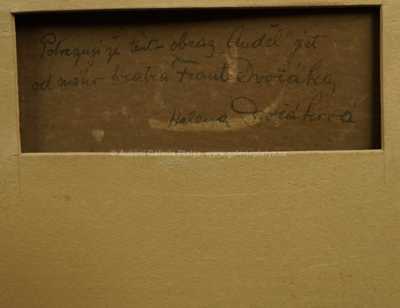 Potvrzuji že tento obraz "Anděl" jest
od mého bratra Frant. Dvořáka,
Helena Dvořáková
© Aukční Galerie Platýz, www.galerieplatyz.cz